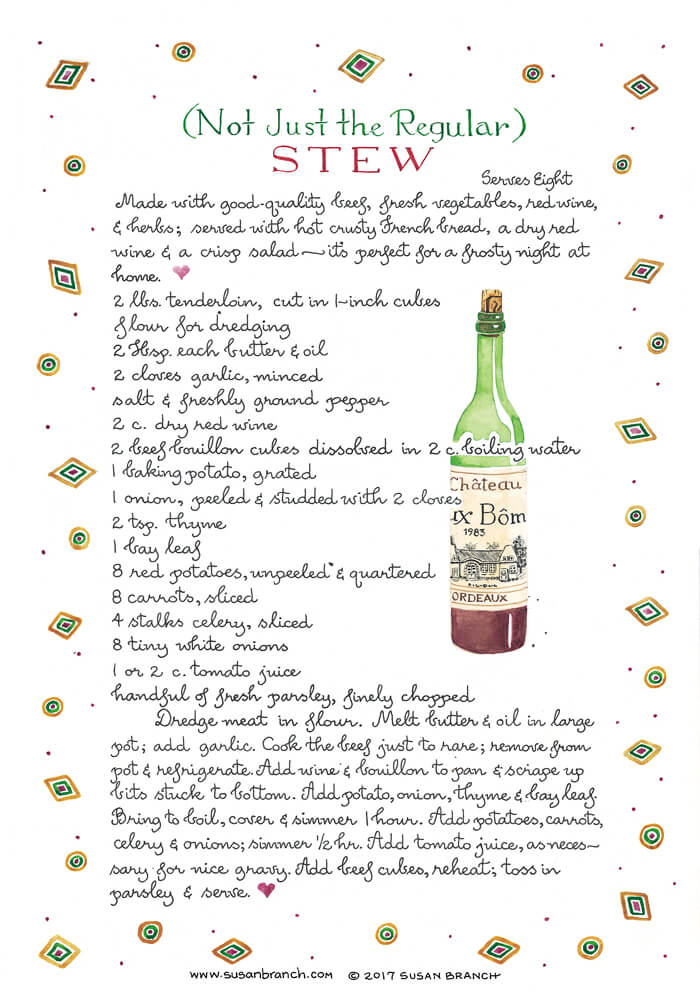 (Not Just the Regular)
STEW
Serves Eight
Made with good-quality beef, fresh vegetables, red wine,
& herbs; served with hot crusty French bread, a dry red
wine & a crisp salad — it's perfect for a frosty night at
home.
2 lbs. tenderloin, cut in 1-inch cubes
flour for dredging
2 Tbsp. each butter & oil
2 cloves garlic, minced
salt & freshly ground pepper
2 c. dry red wine
2 beef bouillon cubes dissolved in 2 c. boiling water
1 baking potato, grated
1 onion, peeled & studded with 2 cloves
2 tsp. thyme
1 bay leaf
8 red potatoes, unpeeled & quartered
8 carrots, sliced
4 stalks celery, sliced
8 tiny white onions
1 or 2 c. tomato juice
handful of fresh parsley, finely chopped
Château
ux Bôm
1983
ORDEAUX
Dredge meat in flour. Melt butter & oil in large
pot; add garlic. Cook the beef just to rare; remove from
pot & refrigerate. Add wine & bouillon to pan & scrape up
bits stuck to bottom. Add potato, onion, thyme & bay leaf.
Bring to boil, cover & simmer 1 hour. Add potatoes, carrots,
celery & onions; simmer ½ hr. Add tomato juice, as neces-
sary for nice gravy. Add beef cubes, reheat; toss in
parsley & serve.
www.susanbranch.com © 2017 SUSAN BRANCH